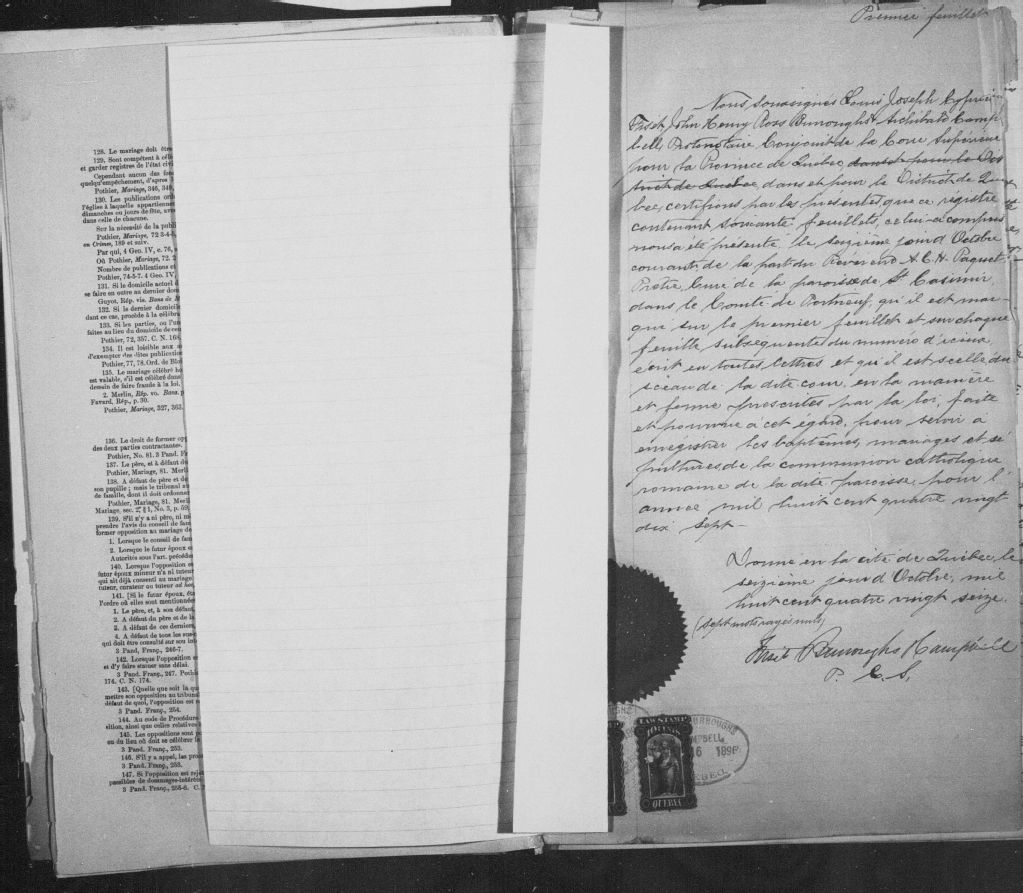 128. Le mariage doit être
129. Sont compétent à célé
et garder registres de l'état civi
Cependant aucun des fon
quelqu'empêchement, d'apres
Pothier, Mariage, 346, 349,
130. Les publications or
l'église à laquelle appartienne
dimanches ou jours de fête, ave
dans celle de chacune.
Sur la nécessité de la publi
Pothier, Mariage, 72 3-4-5
en Crimes, 189 et suiv.
Par qui, 4 Geo. IV, c. 76, s
Où Pothier, Mariage, 72. 2
Nombre de publications et
Pothier, 74-5-7. 4 Geo. IV,
131. Si le domicile actuel d
se faire en outre au dernier dom
Guyot. Rép. vis. Bans de M
132. Si le dernier domicile
dant ce cas, procède à la célébra
133. Si les parties, ou l'un
faites au lieu du domicile de cen
Pothier, 72, 357. C. N. 168
134. Il est loisible aux a
d'exempter des dites publication
Pothier, 77, 78. Ord. de Blo
135. Le mariage célébré ho
est valable, s'il est célébré dans
dessein de faire fraude à la loi.
2. Merlin, Rép. vo. Bans. p
Favard. Rép., p. 30.
Pothier, Mariage, 327, 363.
136. Le droit de former opp
des deux parties contractantes.
Pothier, No. 81. 3 Pand. Fr
137. Le père, et à défaut du
Pothier, Mariage, 81. Merli
138. A défaut de père et de
son pupille ; mais le tribunal au
de famille, dont il doit ordonner
Pothier, Mariage, 81. Merli
Mariage, sec. 2, § 1, No. 3, p. 59,
139. S'il n'y a ni père, ni m
prendre l'avis du conseil de fam
former opposition au mariage de
1. Lorsque le conseil de fam
2. Lorsque le futur époux e
Autorités sous l'art. précéden
140. Lorsque l'opposition e
futur époux mineur n'a ni tuteur
qui ait déjà consenti au mariage
tuteur, curateur ou tuteur ad hoc,
141. [Si le futur époux, éta
l'ordre où elles sont mentionnées
1. Le père, et, à son défaut,
2. A défaut du père et de la
3. A défaut de ces derniers,
4. A défaut de tous les sus-n
qui doit être consulté sur son int
3 Pand, Franç., 246-7.
142. Lorsque l'opposition e
et d'y faire statuer sans délai.
3 Pand. Franç., 247. Pothi
174. C. N. 174.
143. [Quelle que soit la qu
mettre son opposition au tribuna
défaut de quoi, l'opposition est r
3 Pand. Franç., 254.
144. Au code de Procédure
sition, ainsi que celles relatives
145. Les oppositions sont p
en du lieu où doit se célébrer le
3 Pand. Franç., 253.
146. S'il y a appel, les pro
3 Pand. Franç., 253.
147. Si l'opposition est reje
passibles de dommages-intérêt
3 Pand. Franç., 255-6. C.
Premier feuillet
Nous soussignés Louis Joseph Cyprien
Fiset, John Henry Ross Burroughs & Archibald Camp
bell, Protonotaire Conjoint de la Cour Supérieure
pour la Province de Québec, dans et pour le Dis
trict de Québec, dans et pour le District de Qué
bec, certifions par les présentes, que ce régistre
contenant soixante feuillets, celui-ci compris
nous a été présenté, le seizième jour d'Octobre
courant, de la part du Révérend A. C. H. Paquet
Prêtre, Curé de la paroisse de St Casimir
dans le Comté de Portneuf, qu'il est mar-
qué sur le premier feuillet et sur chaque
feuille subséquente du numéro d'iceux,
écrit en toutes lettres et qu'il est scellé du
sceau de la dite cour, en la manière
et forme prescrites par la loi, faite
et pourvue à cet égard, pour servir à
enrégistrer les baptêmes, mariages et sé
pultures de la communion catholique
romaine de la dite paroisse, pour l'
année mil huit cent quatre vingt
dix sept —
Donné en la cité de Québec, le
seizième jour d'Octobre, mil
huit cent quatre vingt seize.
(sept mots rayés nuls)
Fiset Burroughs Campbell
P. C. S.
LAW STAMP
10 CENTS
QUEBEC
BURROUGHS
MPBELL
16 1896
QUEBEC